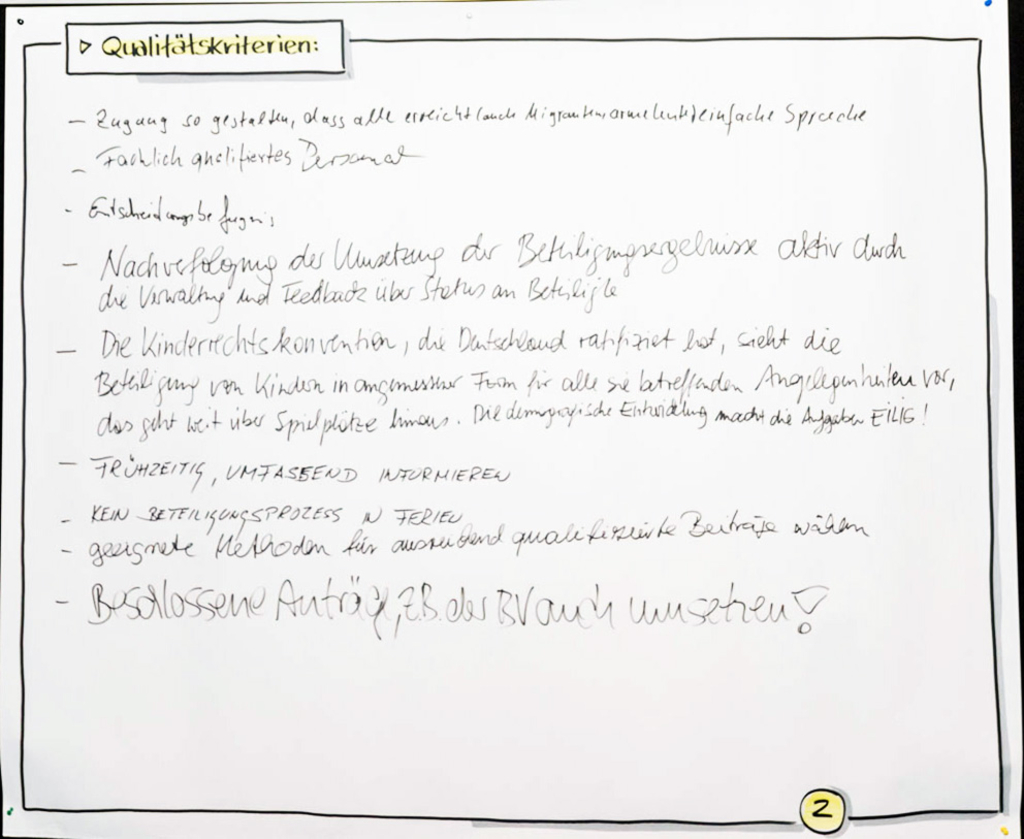 ▷ Qualitätskriterien:
– Zugang so gestalten, dass alle erreicht (auch Migranten, arme Leute) einfache Sprache
– Fachlich qualifiertes Personal
- Entscheidungsbefugnis
– Nachverfolgung der Umsetzung der Beteiligungsergebnisse aktiv durch
die Verwaltung und Feedback über Status an Beteiligte
– Die Kinderrechtskonvention, die Deutschland ratifiziert hat, sieht die
Beteiligung von Kindern in angemessener Form für alle sie betreffenden Angelegenheiten vor,
das geht weit über Spielplätze hinaus. Die demografische Entwicklung macht die Aufgaben EILIG!
– FRÜHZEITIG, UMFASSEND INFORMIEREN
- KEIN BETEILIGUNGSPROZESS IN FERIEN
- geeignete Methoden für ausreichend qualifizierte Beiträge wählen
– Beschlossene Anträge, z.B. der BV auch umsetzen!
2